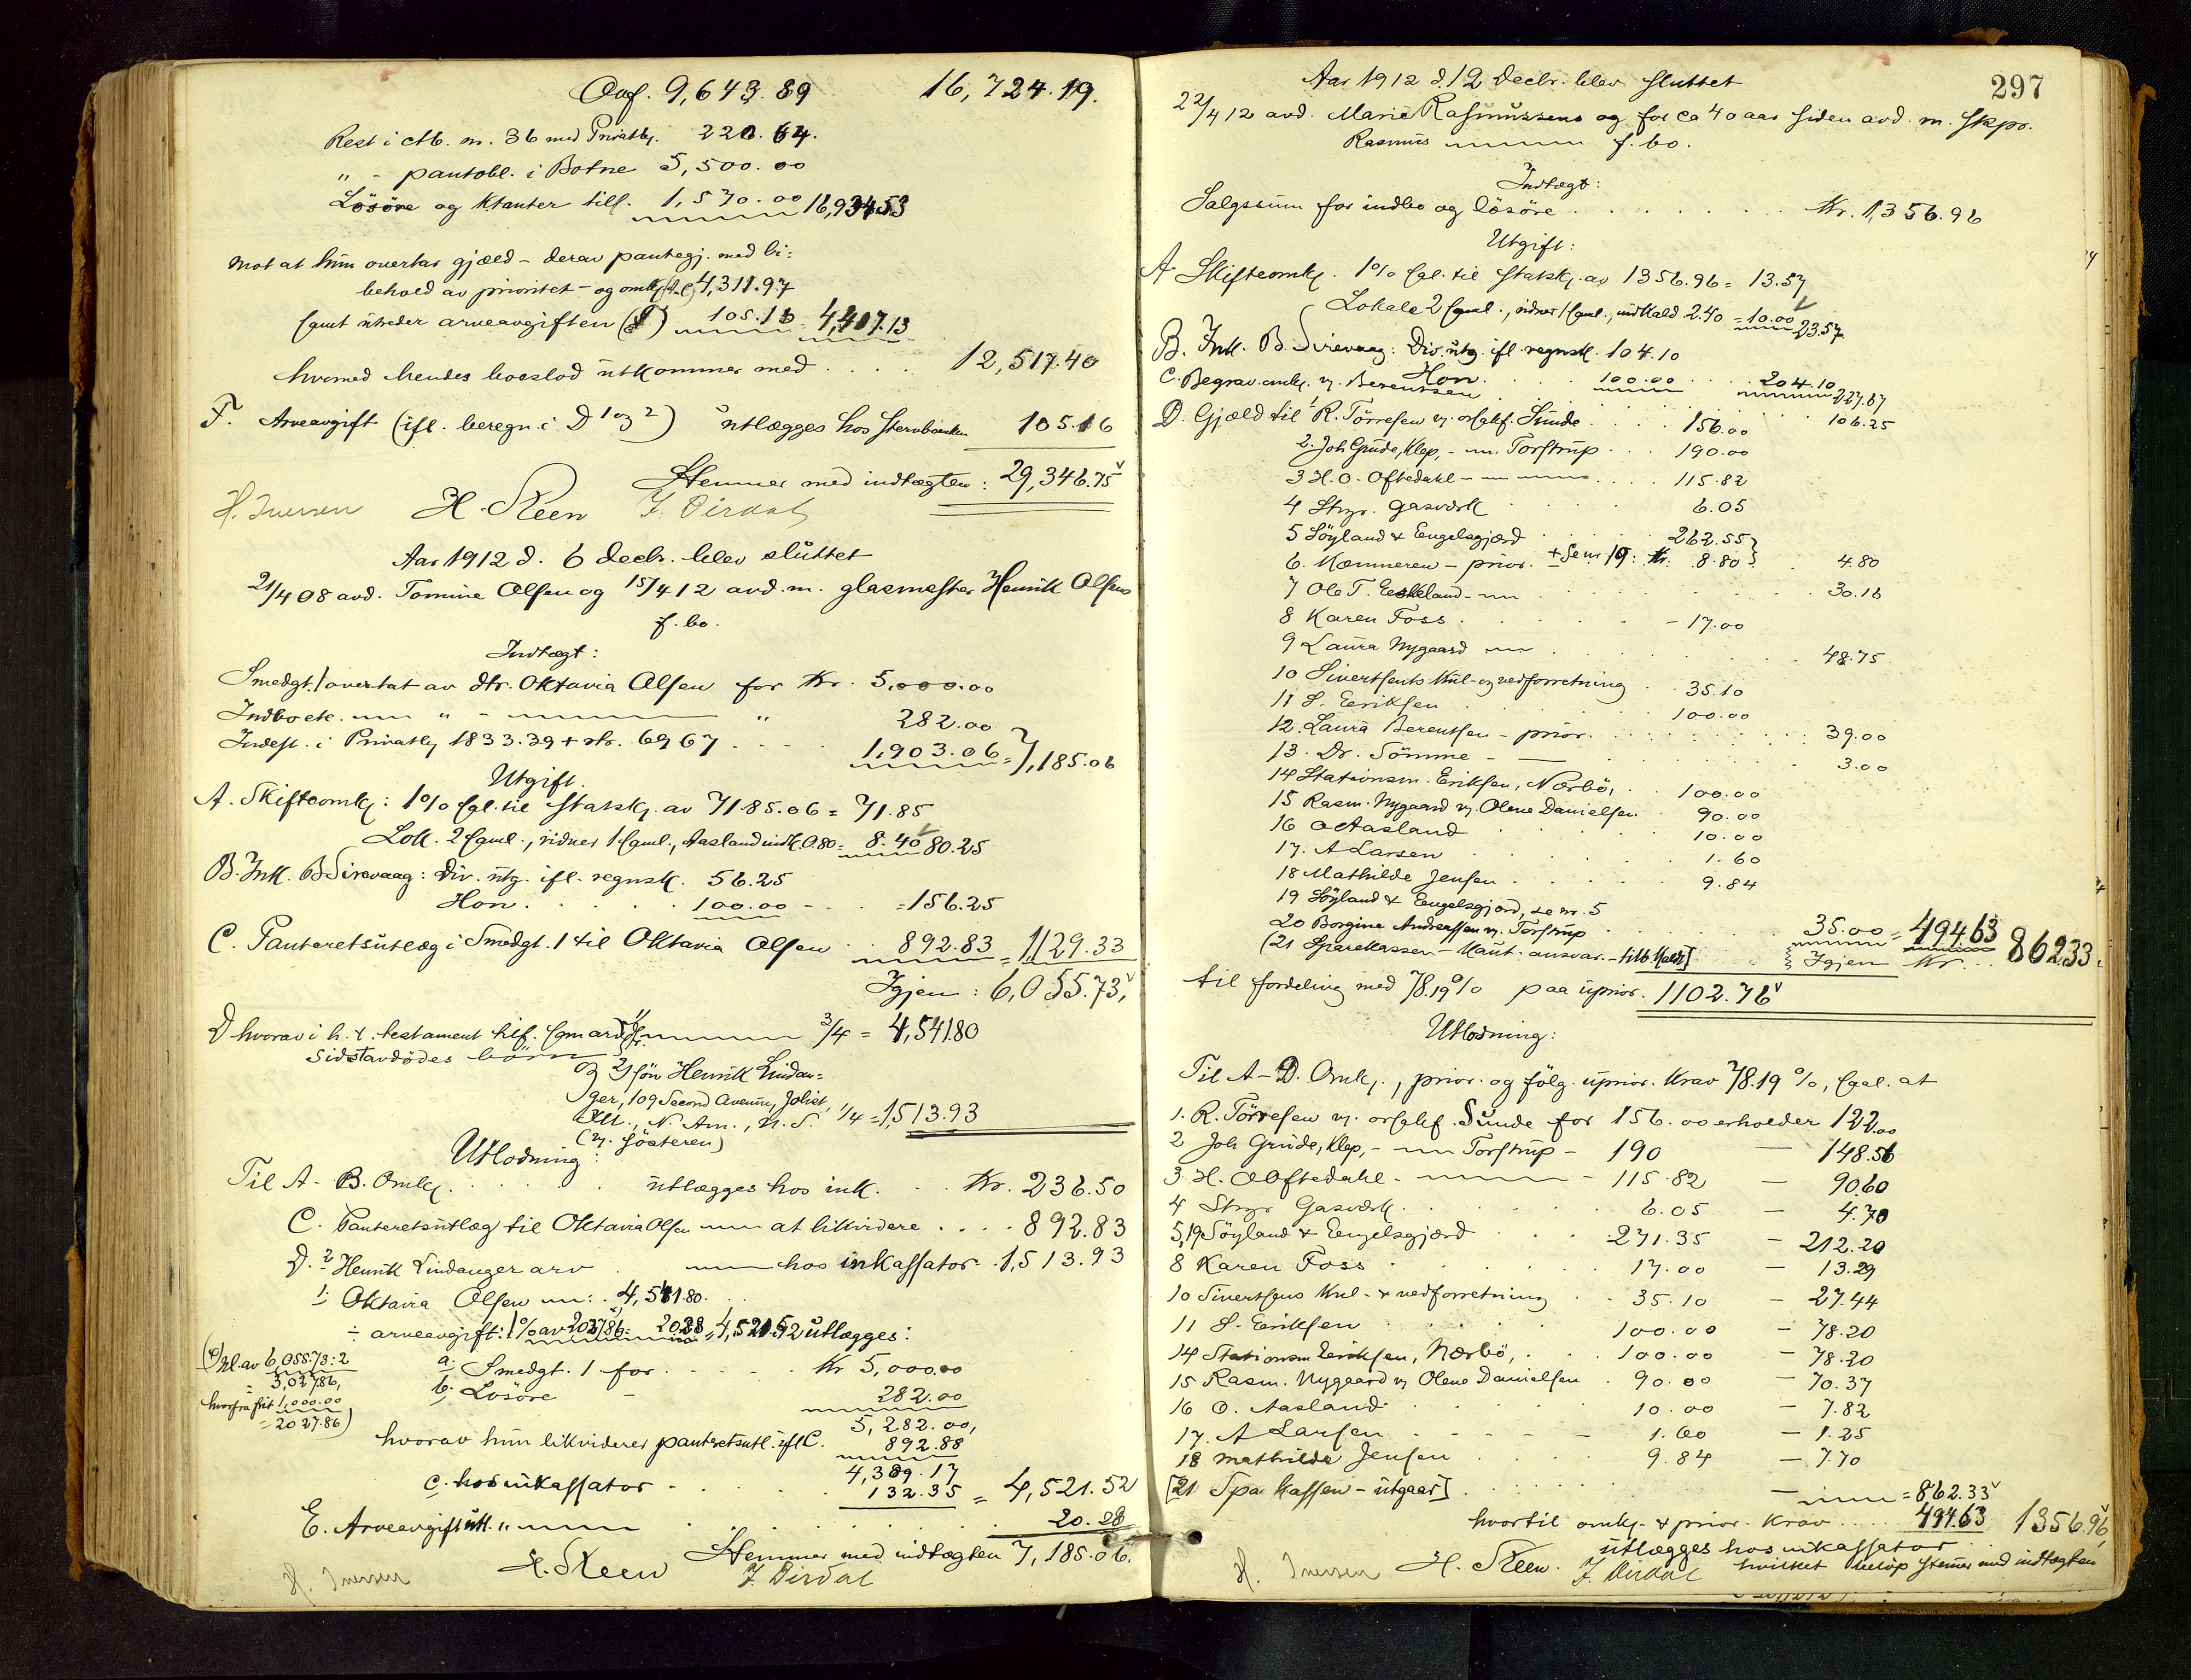 Ovf. 9,643.89 16,724.19.
Rest i Ab. m. 36 med Privatbk. 220.64.
" - pantobl. i Botne 5,500.00
Lösöre og Ktanter till. 1,570.00 16,934.53
mot at hun overtar gjæld - derav pantegj. med bi=
behold av prioritet - og omk. 4,311.97
samt utreder arveavgiften 105.16 = 4,417.13
hvormed hendes boeslod utkommer med . . . . 12,517.40
F. Arveavgift (ifl. beregn. i D 1 og 2) utlægges hos Stervboenken 105.16
Stemmer med indtægten: 29,346.75
H. Iversen H. Steen J. Dirdal
Aar 1912 d. 6 decbr. blev sluttet
21/4 08 avd. Tomine Olsen og 15/4 12 avd. m. glasmester Henrik Olsens
f. bo.
Indtægt:
Smedgt. 1 overtat av dtr. Oktavia Olsen for Kr. 5,000.00
Indbo etc. " - " 282.00
Indest. i Privatbk 1833.39 + rtr. 69 67 . . . . 1,903.06 = 7,185.06
Utgift.
A. Skifteomk: 1% sgl. til statsk. av 7185.06 = 71.85
Lok. 2 saml., vidner 1 saml., Aasland indk. 0.80 = 8.40 80.25
B. Ink. B Sirevaag: Div. utg. ifl. regnsk. 56.25
Hon. . . . . 100.00 - . . = 156.25
C. Panteretsutlæg i Smedgt. 1 til Oktavia Olsen . . 892.83 = 1,129.33
Igjen: 6,055.73,
D hvorav i h. t. testament tilf. 3/4 = 4,541.80
sidstavdödes börn
og 2) sön Henrik Lindan=
ger, 109 Second Avenue, Joliet,
Ill., N. Am., U. S. 1/4 = 1,513.93
(v. sösteren)
Utlodning:
Til A - B. Omk. . . . . utlægges hos ink. . . Kr. 236.50
C. Panteretsutlæg til Oktavia Olsen at likvidere . . . . 892.83
D. 2 Henrik Lindanger arv . hos inkassator . 1,513.93
1: Oktavia Olsen 4,541.80.
÷ arveavgift: 1% av 2027.86 = 20.28 = 4,521.52 utlægges:
(*) Kl. av 6,055.73 : 2
= 3,027.86,
hvorfra frit 1,000.00
= 2027.86)
a. Smedgt. 1 for . . . . Kr 5,000.00
b. Lösöre - 282.00
5,282.00,
hvorav hun likviderer panteretsutl. ifl C. 892.83
4,389.17
c. hos inkassator . . . . 132.35 = 4,521.52
E. Arveavgift utl. " . . . . 20.28
Stemmer med indtægten 7,185.06.
H. Iversen H. Steen J. Dirdal
297
Aar 1912 d. 12 decbr. blev sluttet
22/4 12 avd. Marie Rasmussens og for ca 40 aar siden avd. m. skpr.
Rasmus f. bo.
Indtægt:
Salgssum for indbo og lösöre . . . . . . Kr. 1,356.96
Utgift:
A Skifteomk. 1% sgl. til statsk. av 1356.96 = 13.57
Lokale 2 saml., vidner 1 saml., indkald 2.40 = 10.00 23.57
B. Ink. B. Sirevaag: Div. utg. ifl. regnsk. 104.10
Hon. . . . . 100.00 . . . 204.10 227.67
C. Begrav. omk. v. Berentsen . . . . 106.25
D. Gjæld til 1 R. Törresen v. orsgkf. Sunde . . . . 156.00
2. Joh Grude, Klep, - Torstrup . . . 190.00
3 H. O. Oftedahl - . . . . 115.82
4 Stvgr. gasværk . . . . 6.05
5 Söyland & Engelsgjærd . . . 262.55
6. Kæmneren - prior. + se nr. 19: Kr. 8.80 . . 4.80
7 Ole T. Eskeland - . . . . 30.16
8 Karen Foss . . . . - 17.00
9 Laura Nygaard . . . . 48.75
10 Sivertsens kul- og vedforretning . . 35.10
11 S. Eriksen . . . . 100.00
12. Laura Berentsen - prior. . . . . 39.00
13. Dr. Sömme - — . . . . 3.00
14 Stationsm. Eriksen, Nærbö, . . 100.00
15 Rasm. Nygaard v. Olene Danielsen . 90.00
16 O Aasland . . . . 10.00
17. A Larsen . . . . 1.60
18 Mathilde Jensen . . . . 9.84
19 Söyland & Engelsgjærd, se nr. 5
20 Borgine Andreassen v. Torstrup . . . . 35.00 = 494.63
(21 Sparekassen - kaut. ansvar. - tilb.kaldt] Igjen Kr. . . 862.33.
til fordeling med 78.19% paa uprior. 1102.76
Utlodning:
Til A - D. Omk., prior. og fölg. uprior. krav 78.19%, saal. at
1. R. Törresen v. orsgkf. Sunde for 156.00 erholder 122.00
2 Joh Grude, Klep, - Torstrup - 190 — 148.56
3 H. O Oftedahl - - 115.82 — 90.60
4 Stvgr Gasværk . . . . 6.05 — 4.70
5,19 Söyland & Engelsgjærd . . . 271.35 — 212.20
8 Karen Foss . . . . 17.00 — 13.29
10 Sivertsens kul- & vedforretning . . 35.10 — 27.44
11 S. Eriksen . . . . 100.00 — 78.20
14 Stationsm Eriksen, Nærbö, . . 100.00 — 78.20
15 Rasm. Nygaard v Olene Danielsen . 90.00 — 70.37
16 O. Aasland . . . . 10.00 — 7.82
17. A Larsen - - - - 1.60 — 1.25
18 Mathilde Jensen . . . . 9.84 — 7.70
[21 Spa kassen - utgaar] . . . . — = 862.33
hvortil omk. & prior. krav . . . . 494.63 1356.96,
utlægges hos inkassator
hvilket belöp stemmer med indtægten
H. Iversen H. Steen. J. Dirdal